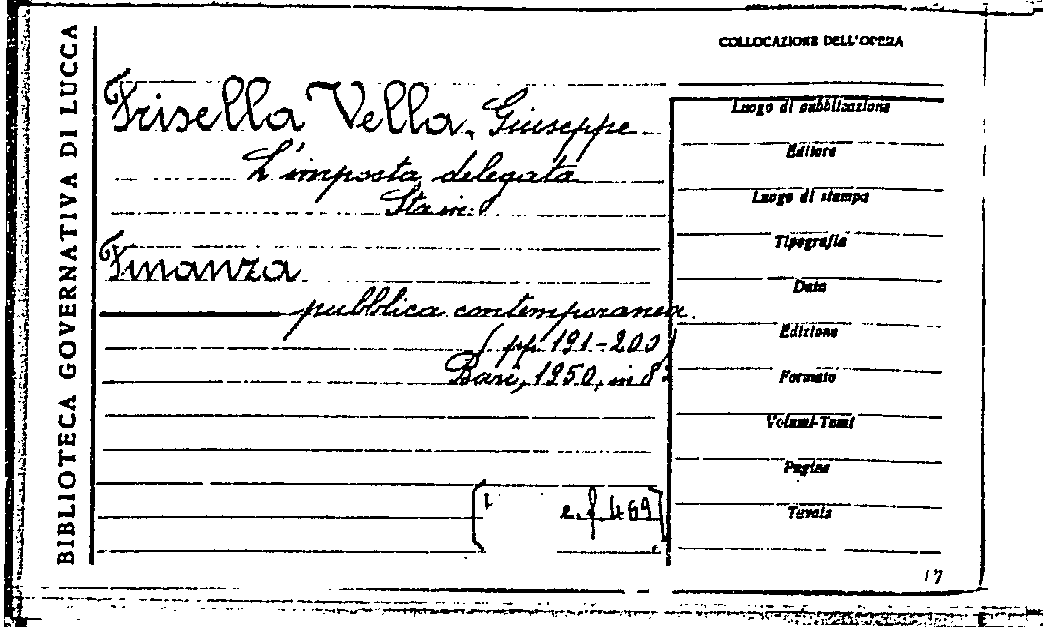 BIBLIOTECA GOVERNATIVA DI LUCCA
COLLOCAZIONE DELL'OPERA
Frisella Vella, Giuseppe
L'imposta delegata
Sta in:
Finanza
pubblica contemporanea.
(pp. 191-200)
Bari, 1950, in 8º
[ e.f. 469 ]
Luogo di pubblicazione
Editore
Luogo di stampa
Tipografia
Data
Edizione
Formato
Volumi-Tomi
Pagine
Tavole
17